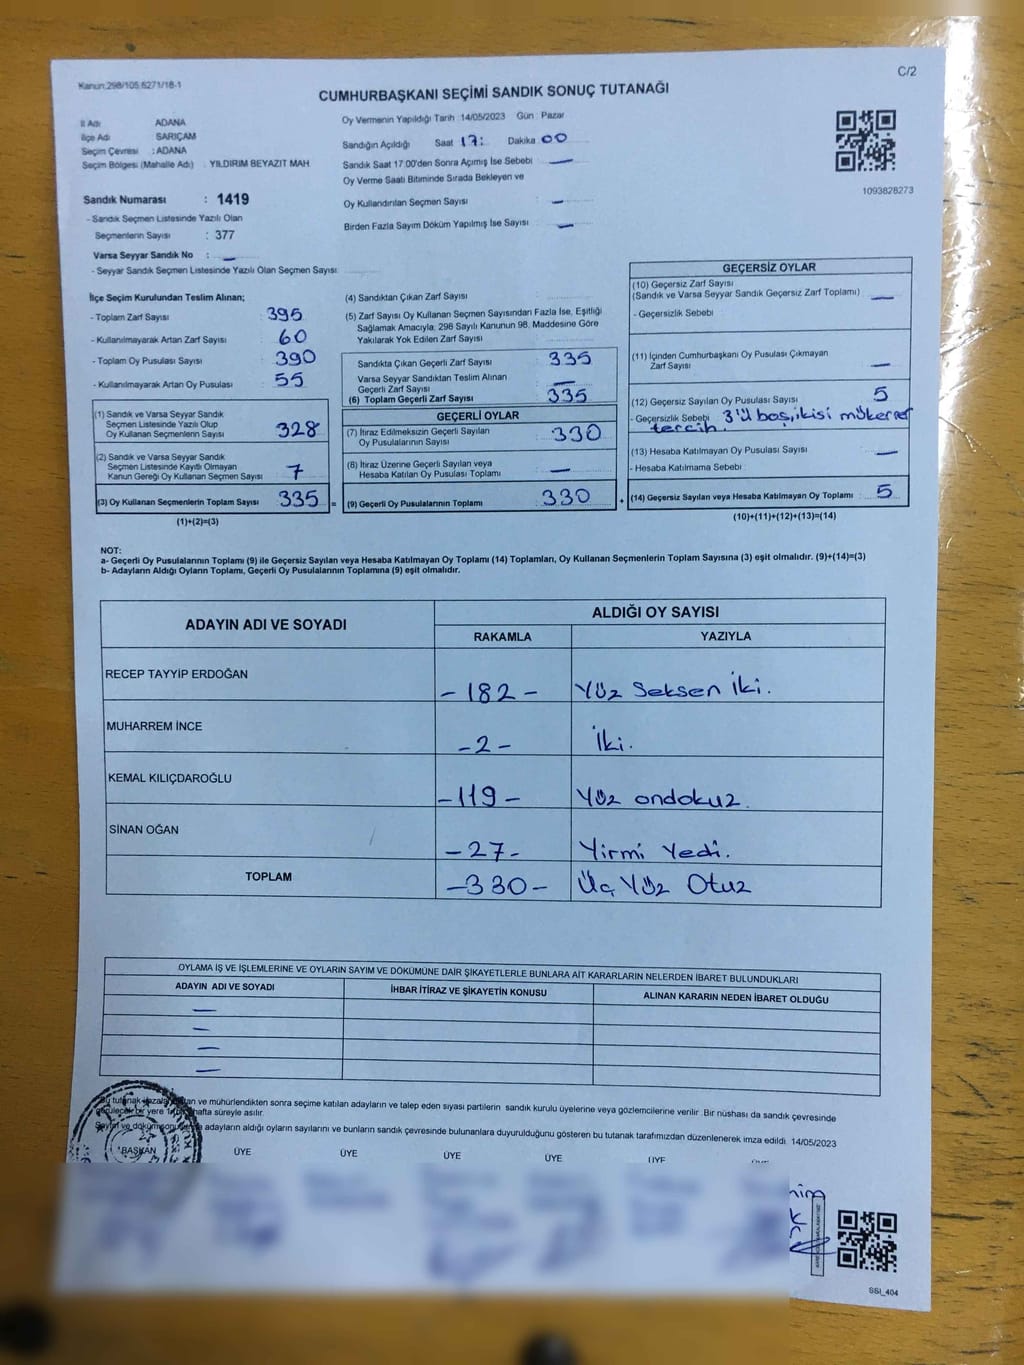 Kanun:298/105,6271/18-1
C/2
CUMHURBAŞKANI SEÇİMİ SANDIK SONUÇ TUTANAĞI
İl Adı : ADANA
İlçe Adı : SARIÇAM
Seçim Çevresi : ADANA
Seçim Bölgesi (Mahalle Adı) : YILDIRIM BEYAZIT MAH.
Sandık Numarası : 1419
- Sandık Seçmen Listesinde Yazılı Olan
Seçmenlerin Sayısı : 377
Varsa Seyyar Sandık No : —
- Seyyar Sandık Seçmen Listesinde Yazılı Olan Seçmen Sayısı:
Oy Vermenin Yapıldığı Tarih : 14/05/2023 Gün : Pazar
Sandığın Açıldığı Saat 17: Dakika 00
Sandık Saat 17:00'den Sonra Açımış İse Sebebi —
Oy Verme Saati Bitiminde Sırada Bekleyen ve
Oy Kullandırılan Seçmen Sayısı : —
Birden Fazla Sayım Döküm Yapılmış İse Sayısı : —
1093828273
İlçe Seçim Kurulundan Teslim Alınan;
- Toplam Zarf Sayısı : 395
- Kullanılmayarak Artan Zarf Sayısı : 60
- Toplam Oy Pusulası Sayısı : 390
- Kullanılmayarak Artan Oy Pusulası : 55
(1) Sandık ve Varsa Seyyar Sandık
Seçmen Listesinde Yazılı Olup
Oy Kullanan Seçmenlerin Sayısı : 328
(2) Sandık ve Varsa Seyyar Sandık
Seçmen Listesinde Kayıtlı Olmayan
Kanun Gereği Oy Kullanan Seçmen Sayısı : 7
(3) Oy Kullanan Seçmenlerin Toplam Sayısı : 335 =
(1)+(2)=(3)
(4) Sandıktan Çıkan Zarf Sayısı
(5) Zarf Sayısı Oy Kullanan Seçmen Sayısından Fazla İse, Eşitliği
Sağlamak Amacıyla, 298 Sayılı Kanunun 98. Maddesine Göre
Yakılarak Yok Edilen Zarf Sayısı
Sandıkta Çıkan Geçerli Zarf Sayısı : 335
Varsa Seyyar Sandıktan Teslim Alınan
Geçerli Zarf Sayısı : —
(6) Toplam Geçerli Zarf Sayısı : 335
GEÇERLİ OYLAR
(7) İtiraz Edilmeksizin Geçerli Sayılan
Oy Pusulalarının Sayısı : 330
(8) İtiraz Üzerine Geçerli Sayılan veya
Hesaba Katılan Oy Pusulası Toplamı : —
(9) Geçerli Oy Pusulalarının Toplamı : 330 +
GEÇERSİZ OYLAR
(10) Geçersiz Zarf Sayısı
(Sandık ve Varsa Seyyar Sandık Geçersiz Zarf Toplamı) —
- Geçersizlik Sebebi
(11) İçinden Cumhurbaşkanı Oy Pusulası Çıkmayan
Zarf Sayısı —
(12) Geçersiz Sayılan Oy Pusulası Sayısı : 5
- Geçersizlik Sebebi 3'ü boş, ikisi mükerrer
tercih.
(13) Hesaba Katılmayan Oy Pusulası Sayısı —
- Hesaba Katılmama Sebebi
(14) Geçersiz Sayılan veya Hesaba Katılmayan Oy Toplamı : 5
(10)+(11)+(12)+(13)=(14)
NOT:
a- Geçerli Oy Pusulalarının Toplamı (9) ile Geçersiz Sayılan veya Hesaba Katılmayan Oy Toplamı (14) Toplamları, Oy Kullanan Seçmenlerin Toplam Sayısına (3) eşit olmalıdır. (9)+(14)=(3)
b- Adayların Aldığı Oyların Toplamı, Geçerli Oy Pusulalarının Toplamına (9) eşit olmalıdır.
ADAYIN ADI VE SOYADI ALDIĞI OY SAYISI
RAKAMLA YAZIYLA
RECEP TAYYİP ERDOĞAN -182- Yüz Seksen İki.
MUHARREM İNCE -2- İki.
KEMAL KILIÇDAROĞLU -119- Yüz ondokuz.
SİNAN OĞAN -27- Yirmi Yedi.
TOPLAM -330- Üç Yüz Otuz
OYLAMA İŞ VE İŞLEMLERİNE VE OYLARIN SAYIM VE DÖKÜMÜNE DAİR ŞİKAYETLERLE BUNLARA AİT KARARLARIN NELERDEN İBARET BULUNDUKLARI
ADAYIN ADI VE SOYADI İHBAR İTİRAZ VE ŞİKAYETİN KONUSU ALINAN KARARIN NEDEN İBARET OLDUĞU
—
—
—
—
Bu tutanak ve mühürlendikten sonra seçime katılan adayların ve talep eden siyasi partilerin sandık kurulu üyelerine veya gözlemcilerine verilir. Bir nüshası da sandık çevresinde
bir yere hafta süreyle asılır.
adayların aldığı oyların sayılarını ve bunların sandık çevresinde bulunanlara duyurulduğunu gösteren bu tutanak tarafımızdan düzenlenerek imza edildi. 14/05/2023
BAŞKAN ÜYE ÜYE ÜYE ÜYE ÜYE
SSI_404